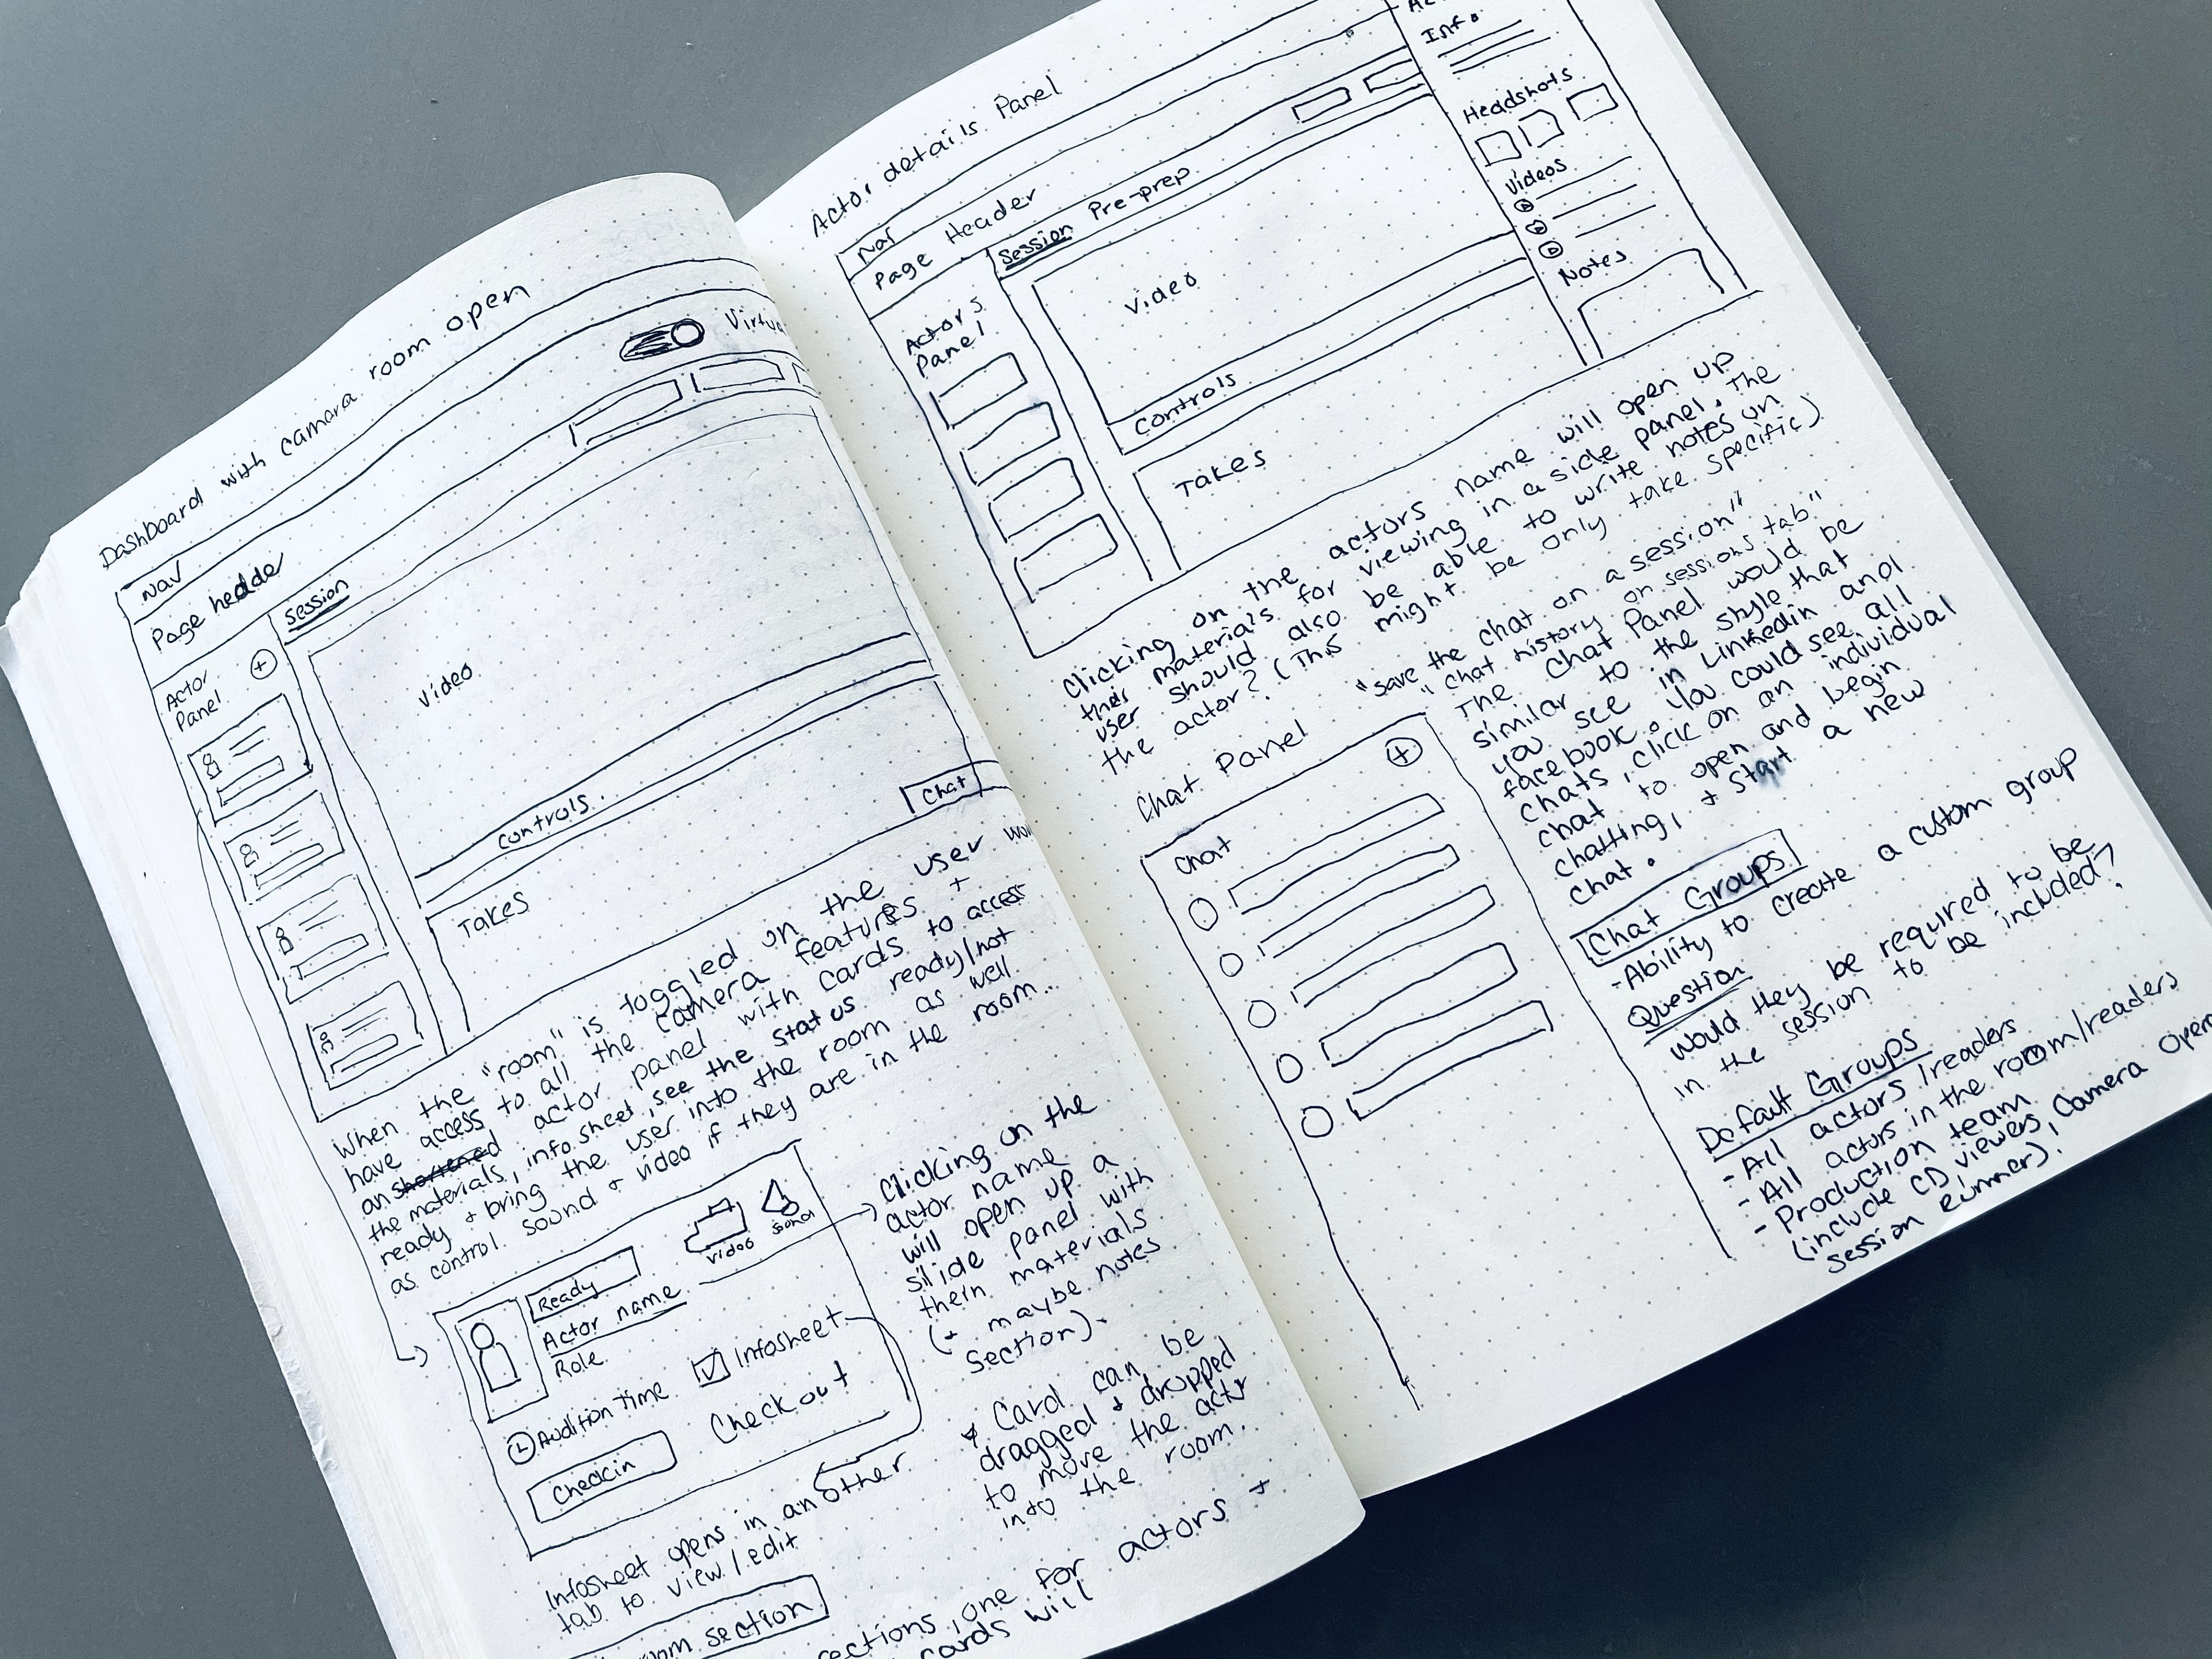 Dashboard with camera room open
Nav
Page hedder
Session
Actor
Panel
Video
Controls.
Chat
Takes
When the "room" is toggled on the user
have access to all the camera features +
an shortened actor panel with cards to access
the materials, info sheet, see the status ready/not
ready + bring the user into the room as well
as control sound + video if they are in the room...
Ready
Actor name
Role
Video
Sound
Audition Time
Infosheet
Checkin
Check out
Clicking on the
actor name
will open up a
slide panel with
their materials
(+ maybe notes
section).
* Card can be
dragged + dropped
to move the actor
into the room.
Infosheet opens in another
tab to view/edit
section
sections, one for actors +
cards will
Actor details Panel
Nav
Page Header
Session Pre-prep
Actors
Panel
Video
Controls
Takes
Info
Headshots
Videos
Notes
Clicking on the actors name will open up
their materials for viewing in a side panel. The
user should also be able to write notes on
the actor? (This might be only take specific)
"save the chat on a session"
"chat history on sessions tab."
Chat Panel
Chat
The Chat Panel would be
similar to the style that
you see in Linkedin and
facebook. You could see all
chats, click on an individual
chat to open and begin
chatting, + start a new
chat.
Chat Groups
-Ability to create a custom group
Question
Would they be required to be
in the session to be included?
Default Groups
-All actors/readers
-All actors in the room/readers
-Production team
(include CD, viewers, Camera
session runner).